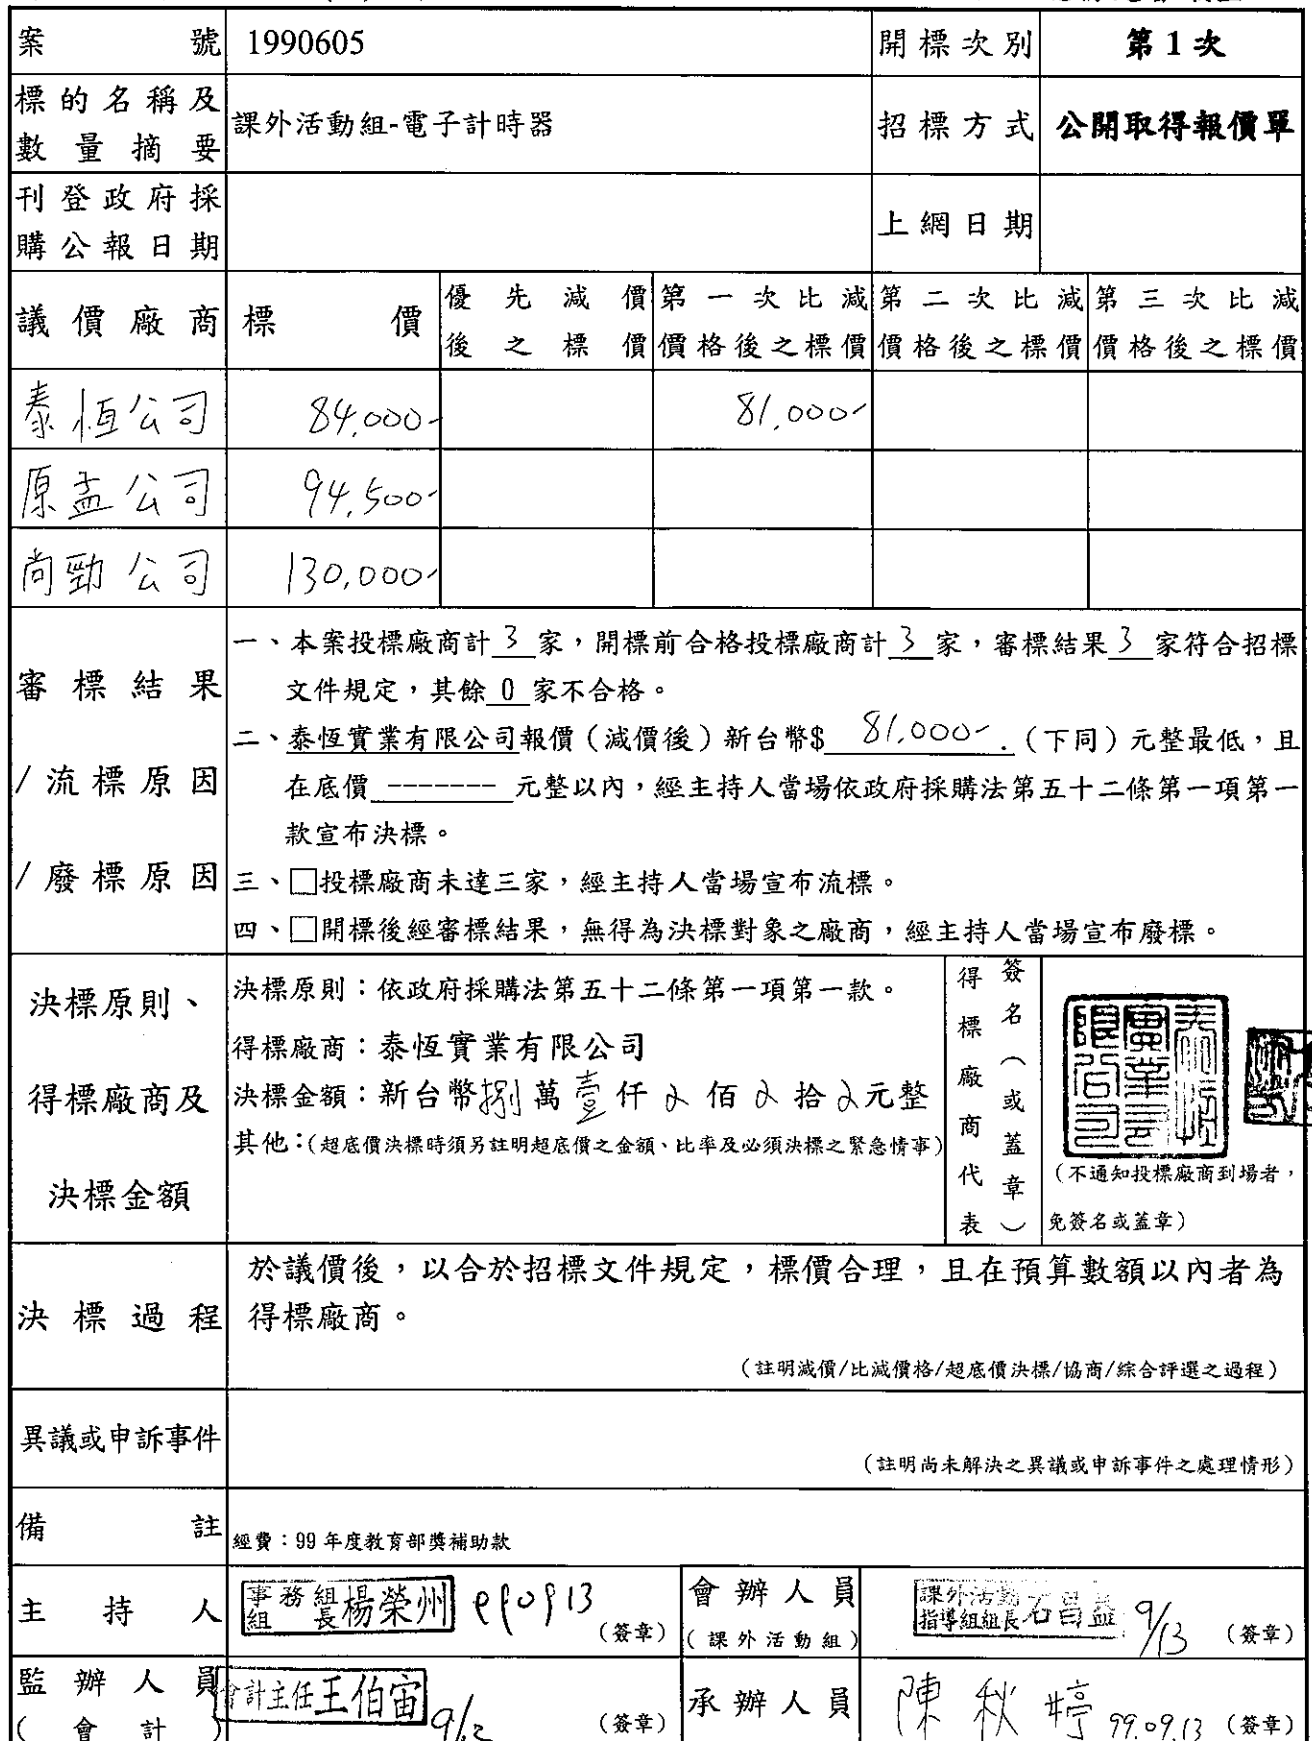 案號 1990605 開標次別 第1次
標的名稱及
數量摘要
課外活動組-電子計時器
招標方式 公開取得報價單
刊登政府採
購公報日期
上網日期
議價廠商 標價
優先減價
後之標價
第一次比減
價格後之標價
第二次比減
價格後之標價
第三次比減
價格後之標價
泰恆公司 84,000- 81,000-
原孟公司 94,500-
尚勁公司 130,000-
審標結果
/流標原因
/廢標原因
一、本案投標廠商計 3 家,開標前合格投標廠商計 3 家,審標結果 3 家符合招標
文件規定,其餘 0 家不合格。
二、泰恆實業有限公司報價(減價後)新台幣$ 81,000- .(下同)元整最低,且
在底價 ------- 元整以內,經主持人當場依政府採購法第五十二條第一項第一
款宣布決標。
三、□投標廠商未達三家,經主持人當場宣布流標。
四、□開標後經審標結果,無得為決標對象之廠商,經主持人當場宣布廢標。
決標原則、
得標廠商及
決標金額
決標原則:依政府採購法第五十二條第一項第一款。
得標廠商:泰恆實業有限公司
決標金額:新台幣捌萬壹仟0佰0拾0元整
其他:(超底價決標時須另註明超底價之金額、比率及必須決標之緊急情事)
得標廠商代表
簽名(或蓋章)
(不通知投標廠商到場者,
免簽名或蓋章)
決標過程
於議價後,以合於招標文件規定,標價合理,且在預算數額以內者為
得標廠商。
(註明減價/比減價格/超底價決標/協商/綜合評選之過程)
異議或申訴事件
(註明尚未解決之異議或申訴事件之處理情形)
備註
經費:99 年度教育部獎補助款
主持人
事務組
組長
楊榮州
990913
(簽章)
會辦人員
(課外活動組)
課外活動
指導組組長
9/13
(簽章)
監辦人員
(會計)
會計主任王伯宙
(簽章)
承辦人員
陳秋婷 99.09.13
(簽章)